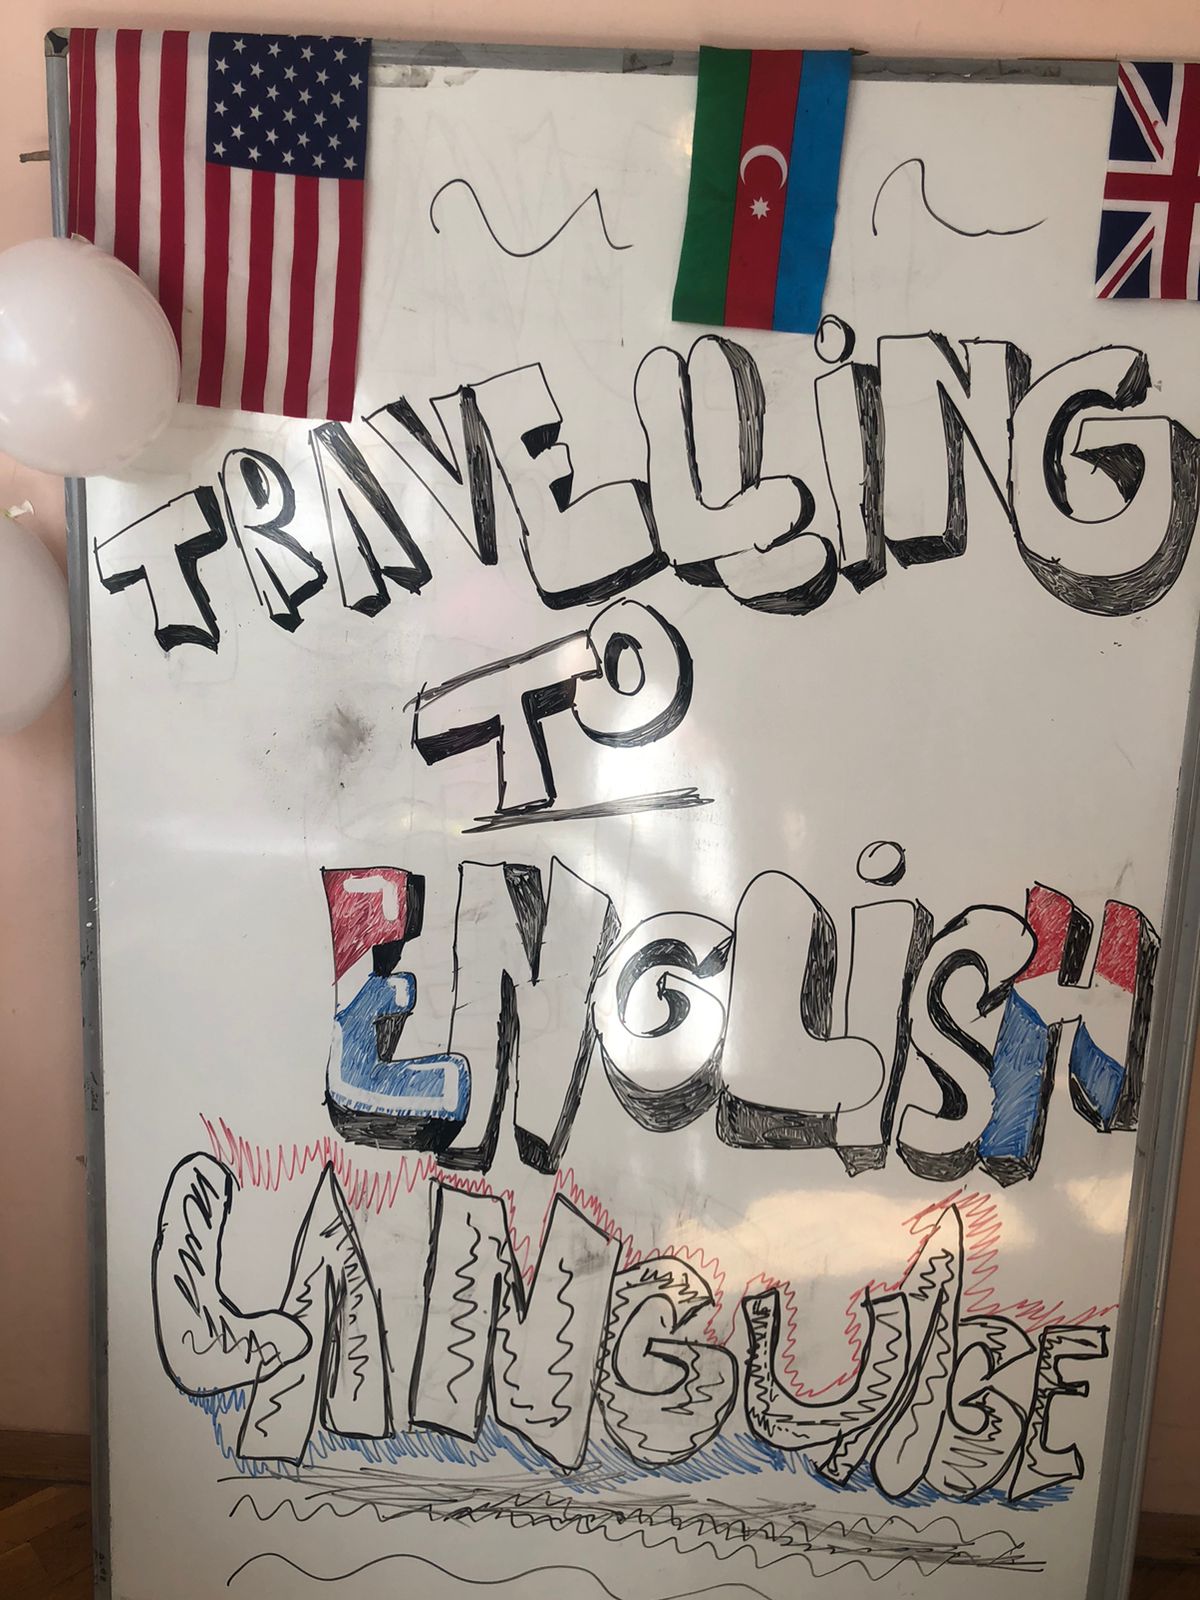 TRAVELLiNG
TO
ENGLiSH
LANGUAGE